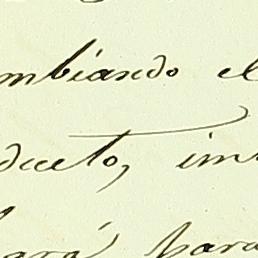 mbiando el
ducto, im
ará para